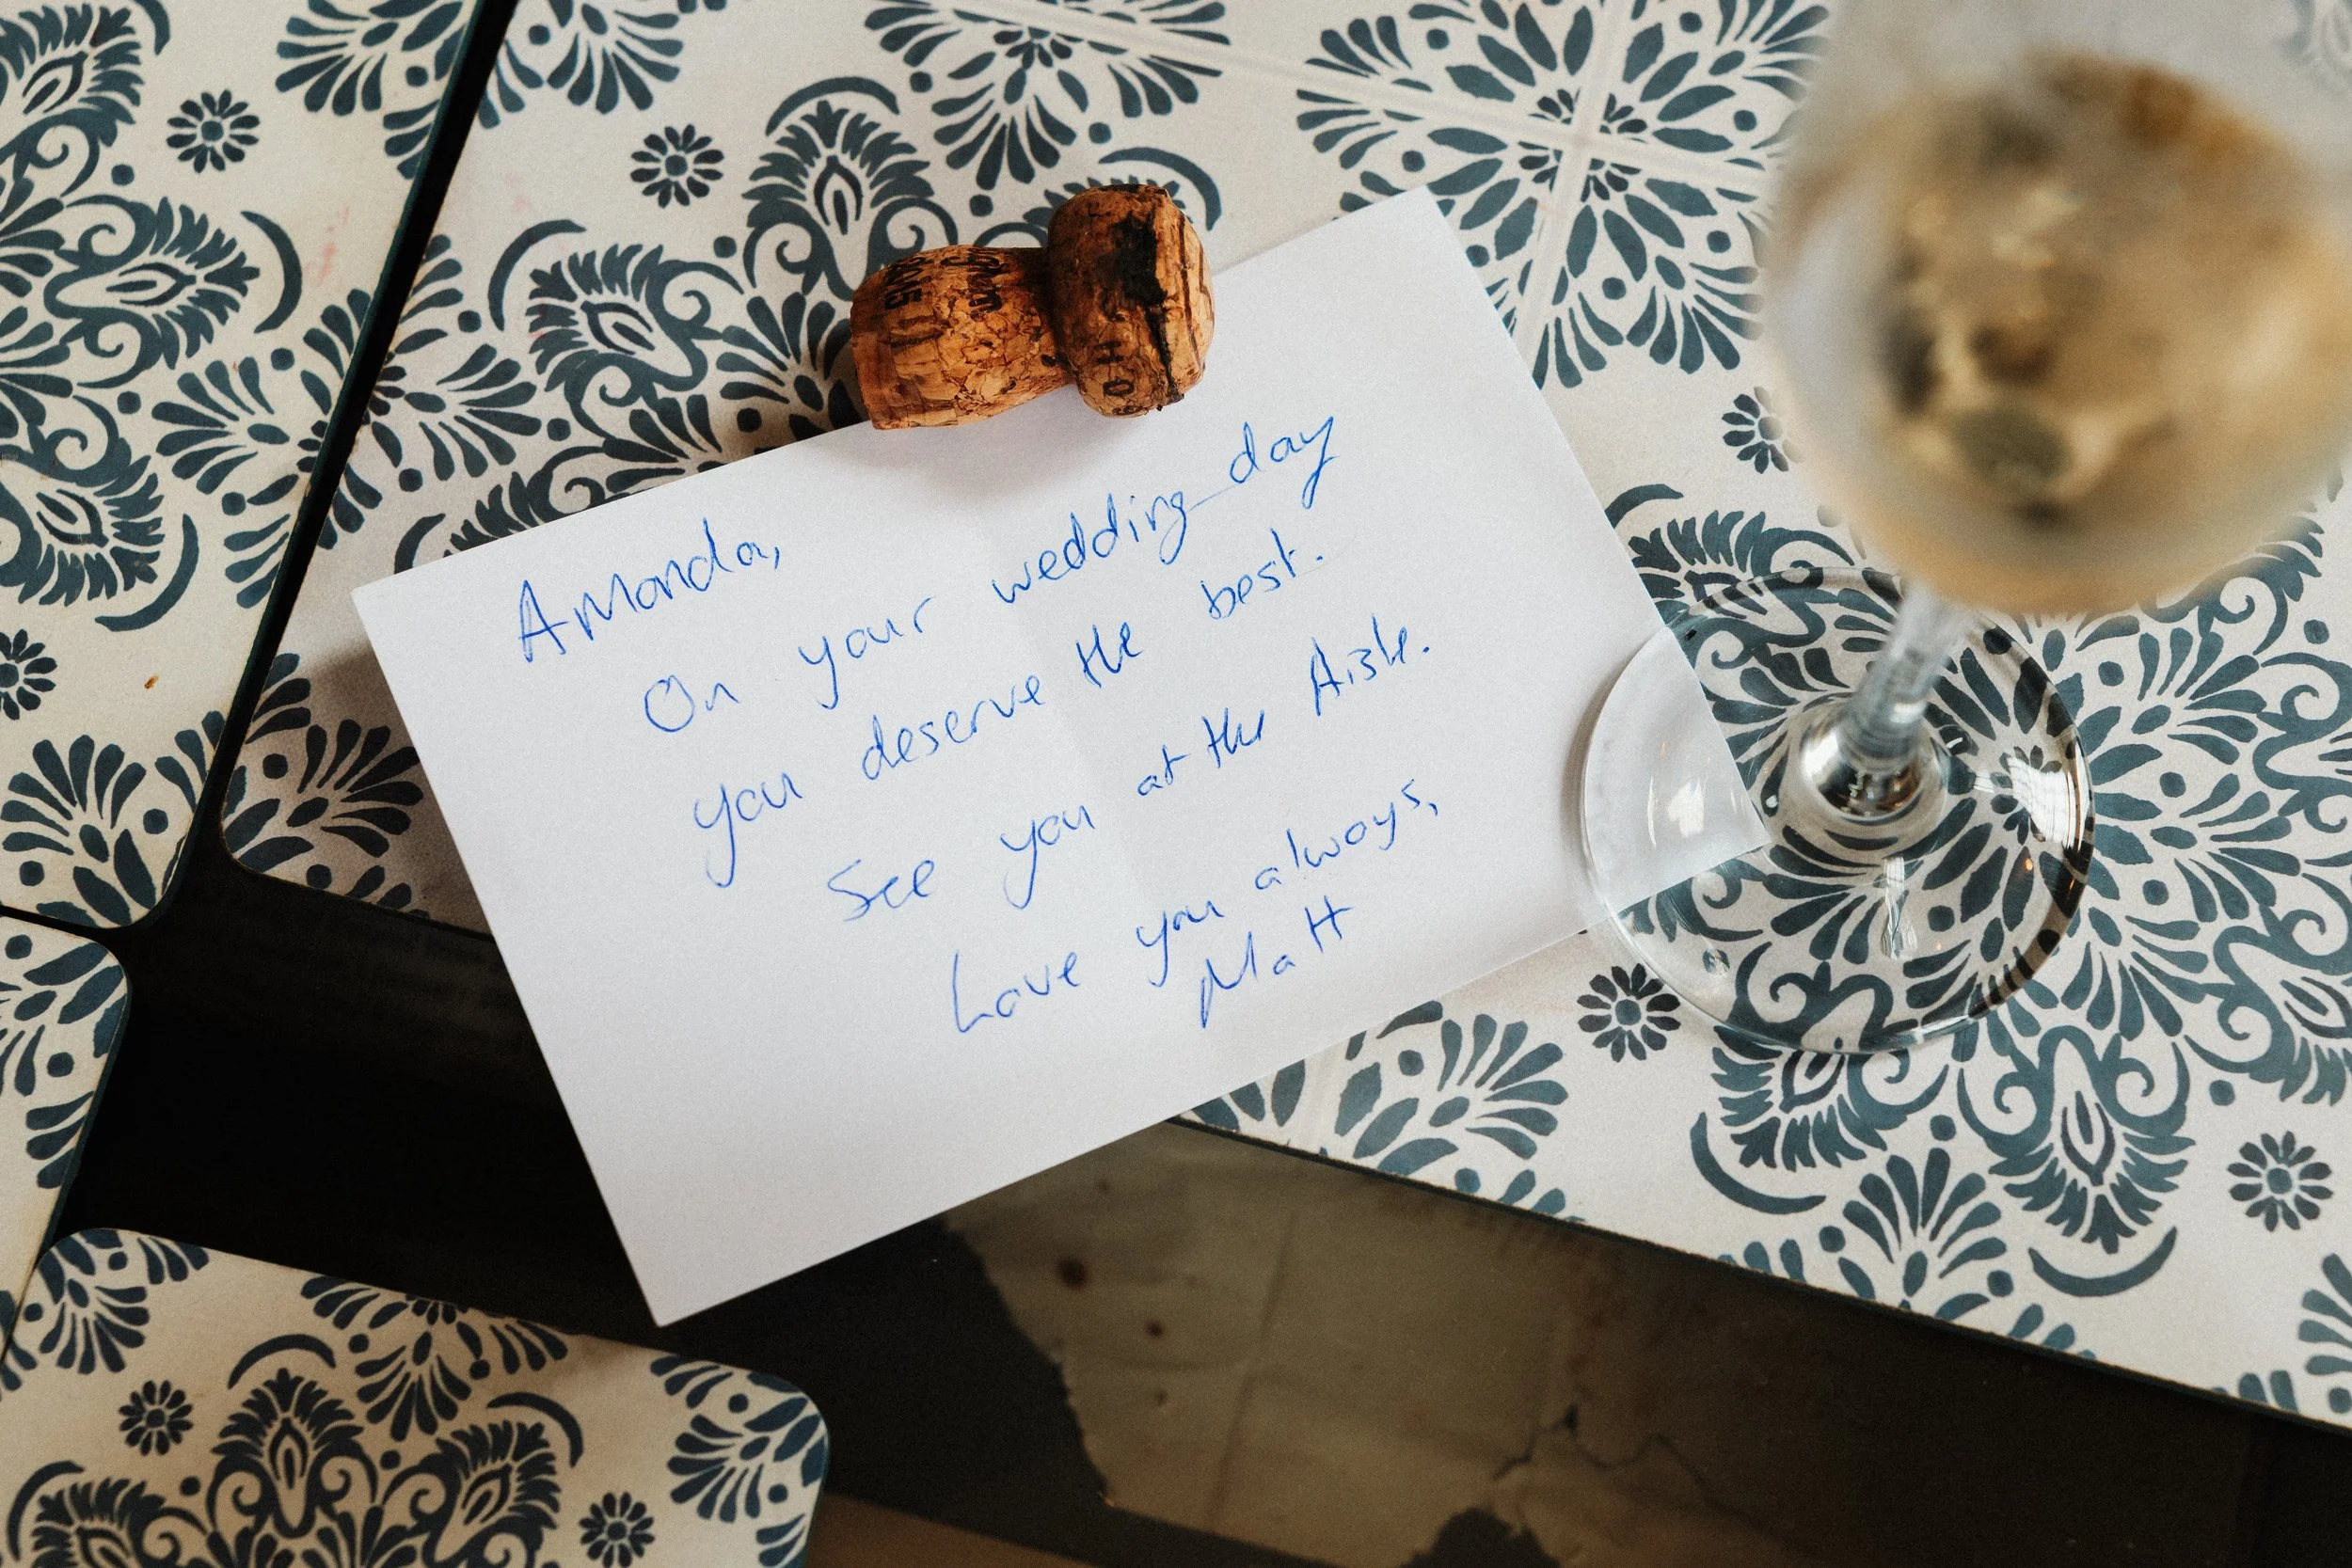 Amanda,
On your wedding day
you deserve the best.
See you at the Aisle.
Love you always,
Matt